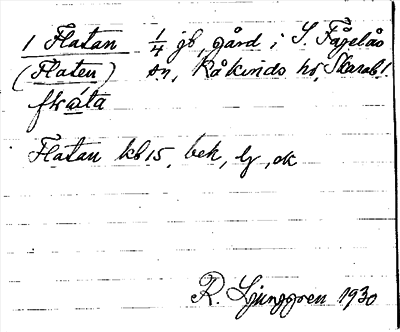 1 Flatan 1/4 gd, gård i S. Fågelås
(Flaten) sn, Kåkinds hd, Skarab. l.
flata
Flatan kb 15, bek, lj, ek
R. Ljunggren 1930